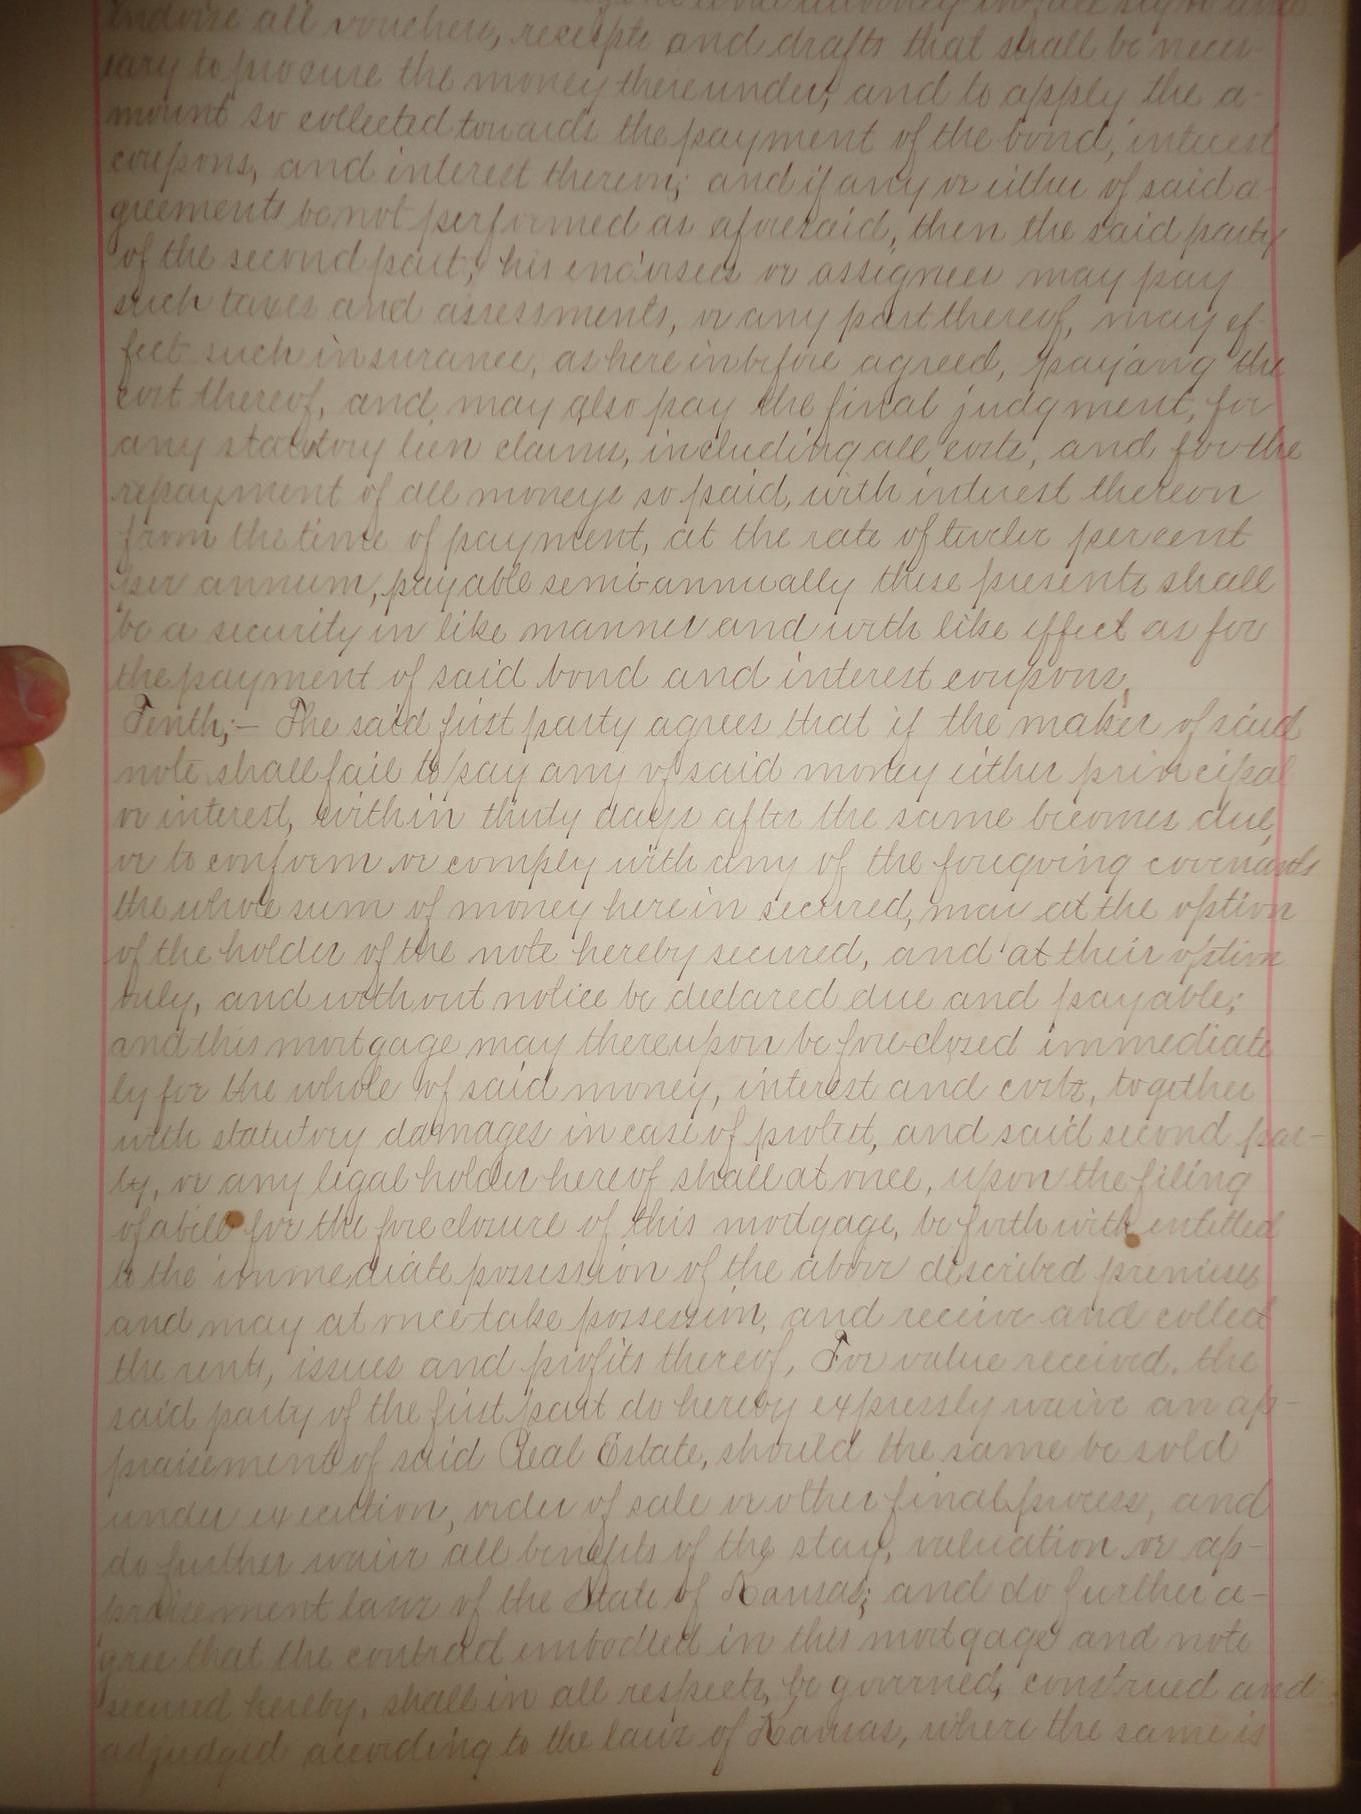 endorse all vouchers, receipts and drafts that shall be neces-
sary to procure the money thereunder, and to apply the a-
mount so collected towards the payment of the bond, interest
coupons, and interest thereon; and if any or either of said a-
greements be not performed as aforesaid, then the said party
of the second part, his endorsees or assignees may pay
such taxes and assessments, or any part thereof, may ef-
fect such insurance, as here inbefore agreed, paying the
cost thereof, and may also pay the final judgment, for
any statutory lien claims, including all costs, and for the
repayment of all moneys so paid, with interest thereon
from the time of payment, at the rate of twelve per cent
per annum, payable semi-annually these presents shall
be a security in like manner and with like effect as for
the payment of said bond and interest coupons.
Tenth;— The said first party agrees that if the maker of said
note shall fail to pay any of said money either principal
or interest, within thirty days after the same becomes due,
or to conform or comply with any of the foregoing covenants
the whole sum of money herein secured, may at the option
of the holder of the note hereby secured, and at their option
only, and without notice be declared due and payable;
and this mortgage may thereupon be fore-closed immediate
ly for the whole of said money, interest and costs, together
with statutory damages in case of protest, and said second par-
ty, or any legal holder hereof shall at once, upon the filing
of a bill for the fore closure of this mortgage, be forth with entitled
to the immediate possession of the above described premises
and may at once take possession, and receive and collect
the rents, issues and profits thereof, For value received, the
said party of the first part do hereby expressly waive an ap-
praisement of said Real Estate, should the same be sold
under execution, order of sale or other final process, and
do further waive all benefits of the stay, valuation or ap-
praisement laws of the State of Kansas; and do further a-
gree that the contract embodied in this mortgage and note
secured hereby, shall in all respects, be governed, construed and
adjudged according to the laws of Kansas, where the same is